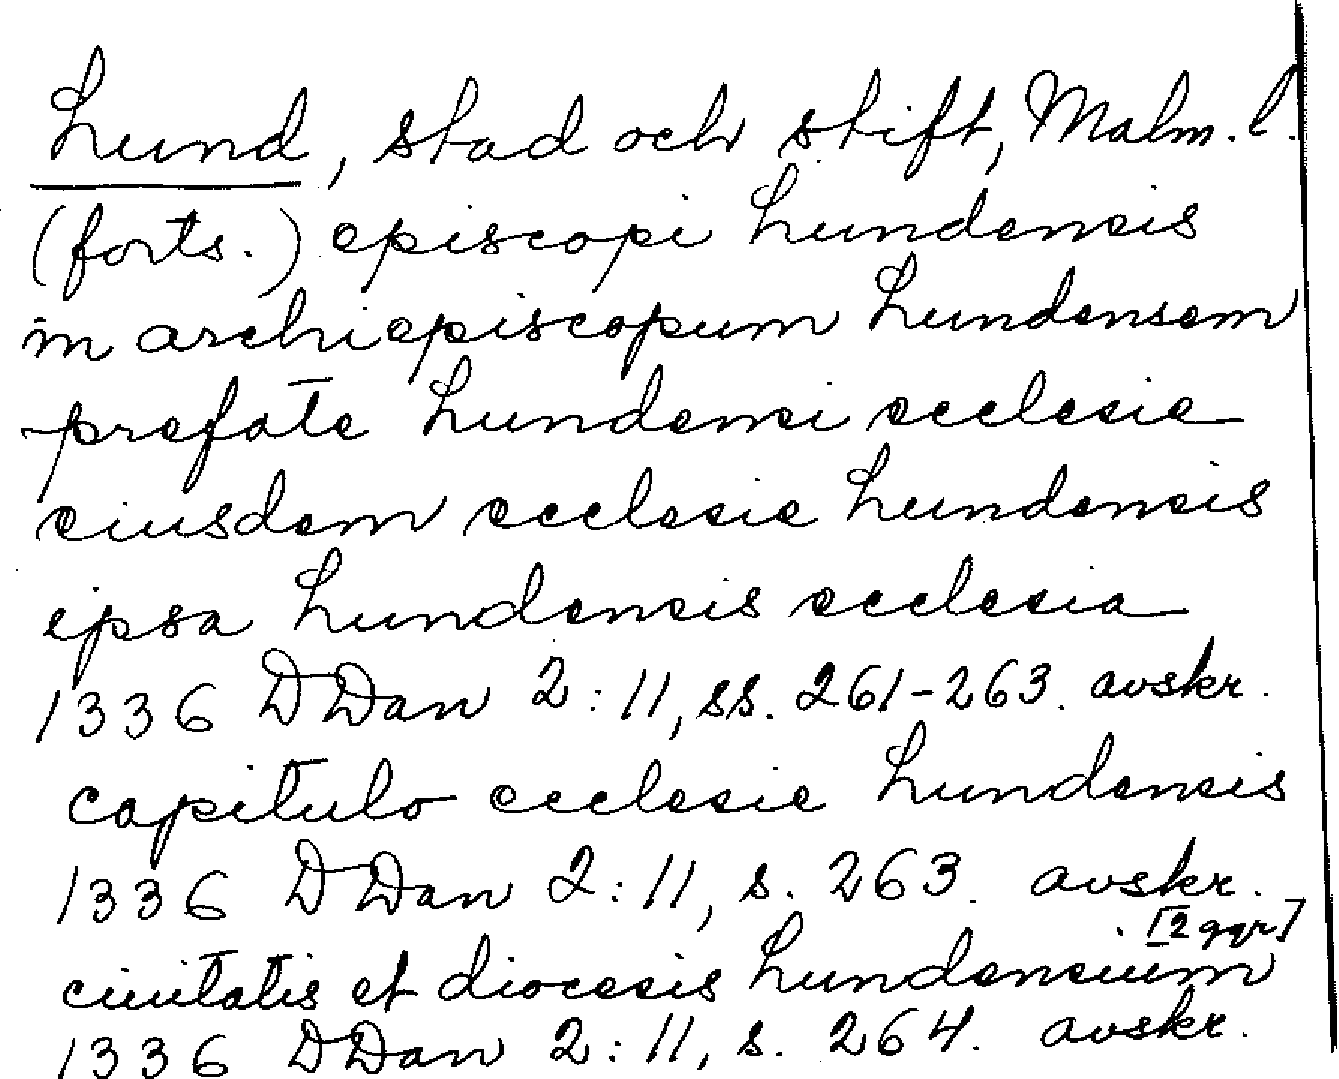 Lund, stad och stift, Malm. l.
(forts.) episcopi Lundensis
in archiepiscopum Lundensem
prefate Lundensi ecclesie
eiusdem ecclesie Lundensis
ipsa Lundensis ecclesia
1336 DDan 2:11, ss. 261-263. avskr.
capitulo ecclesie Lundensis
1336 DDan 2:11, s. 263. avskr.
[2 ggr]
ciuitatis et diocesis Lundensium
1336 DDan 2:11, s. 264. avskr.